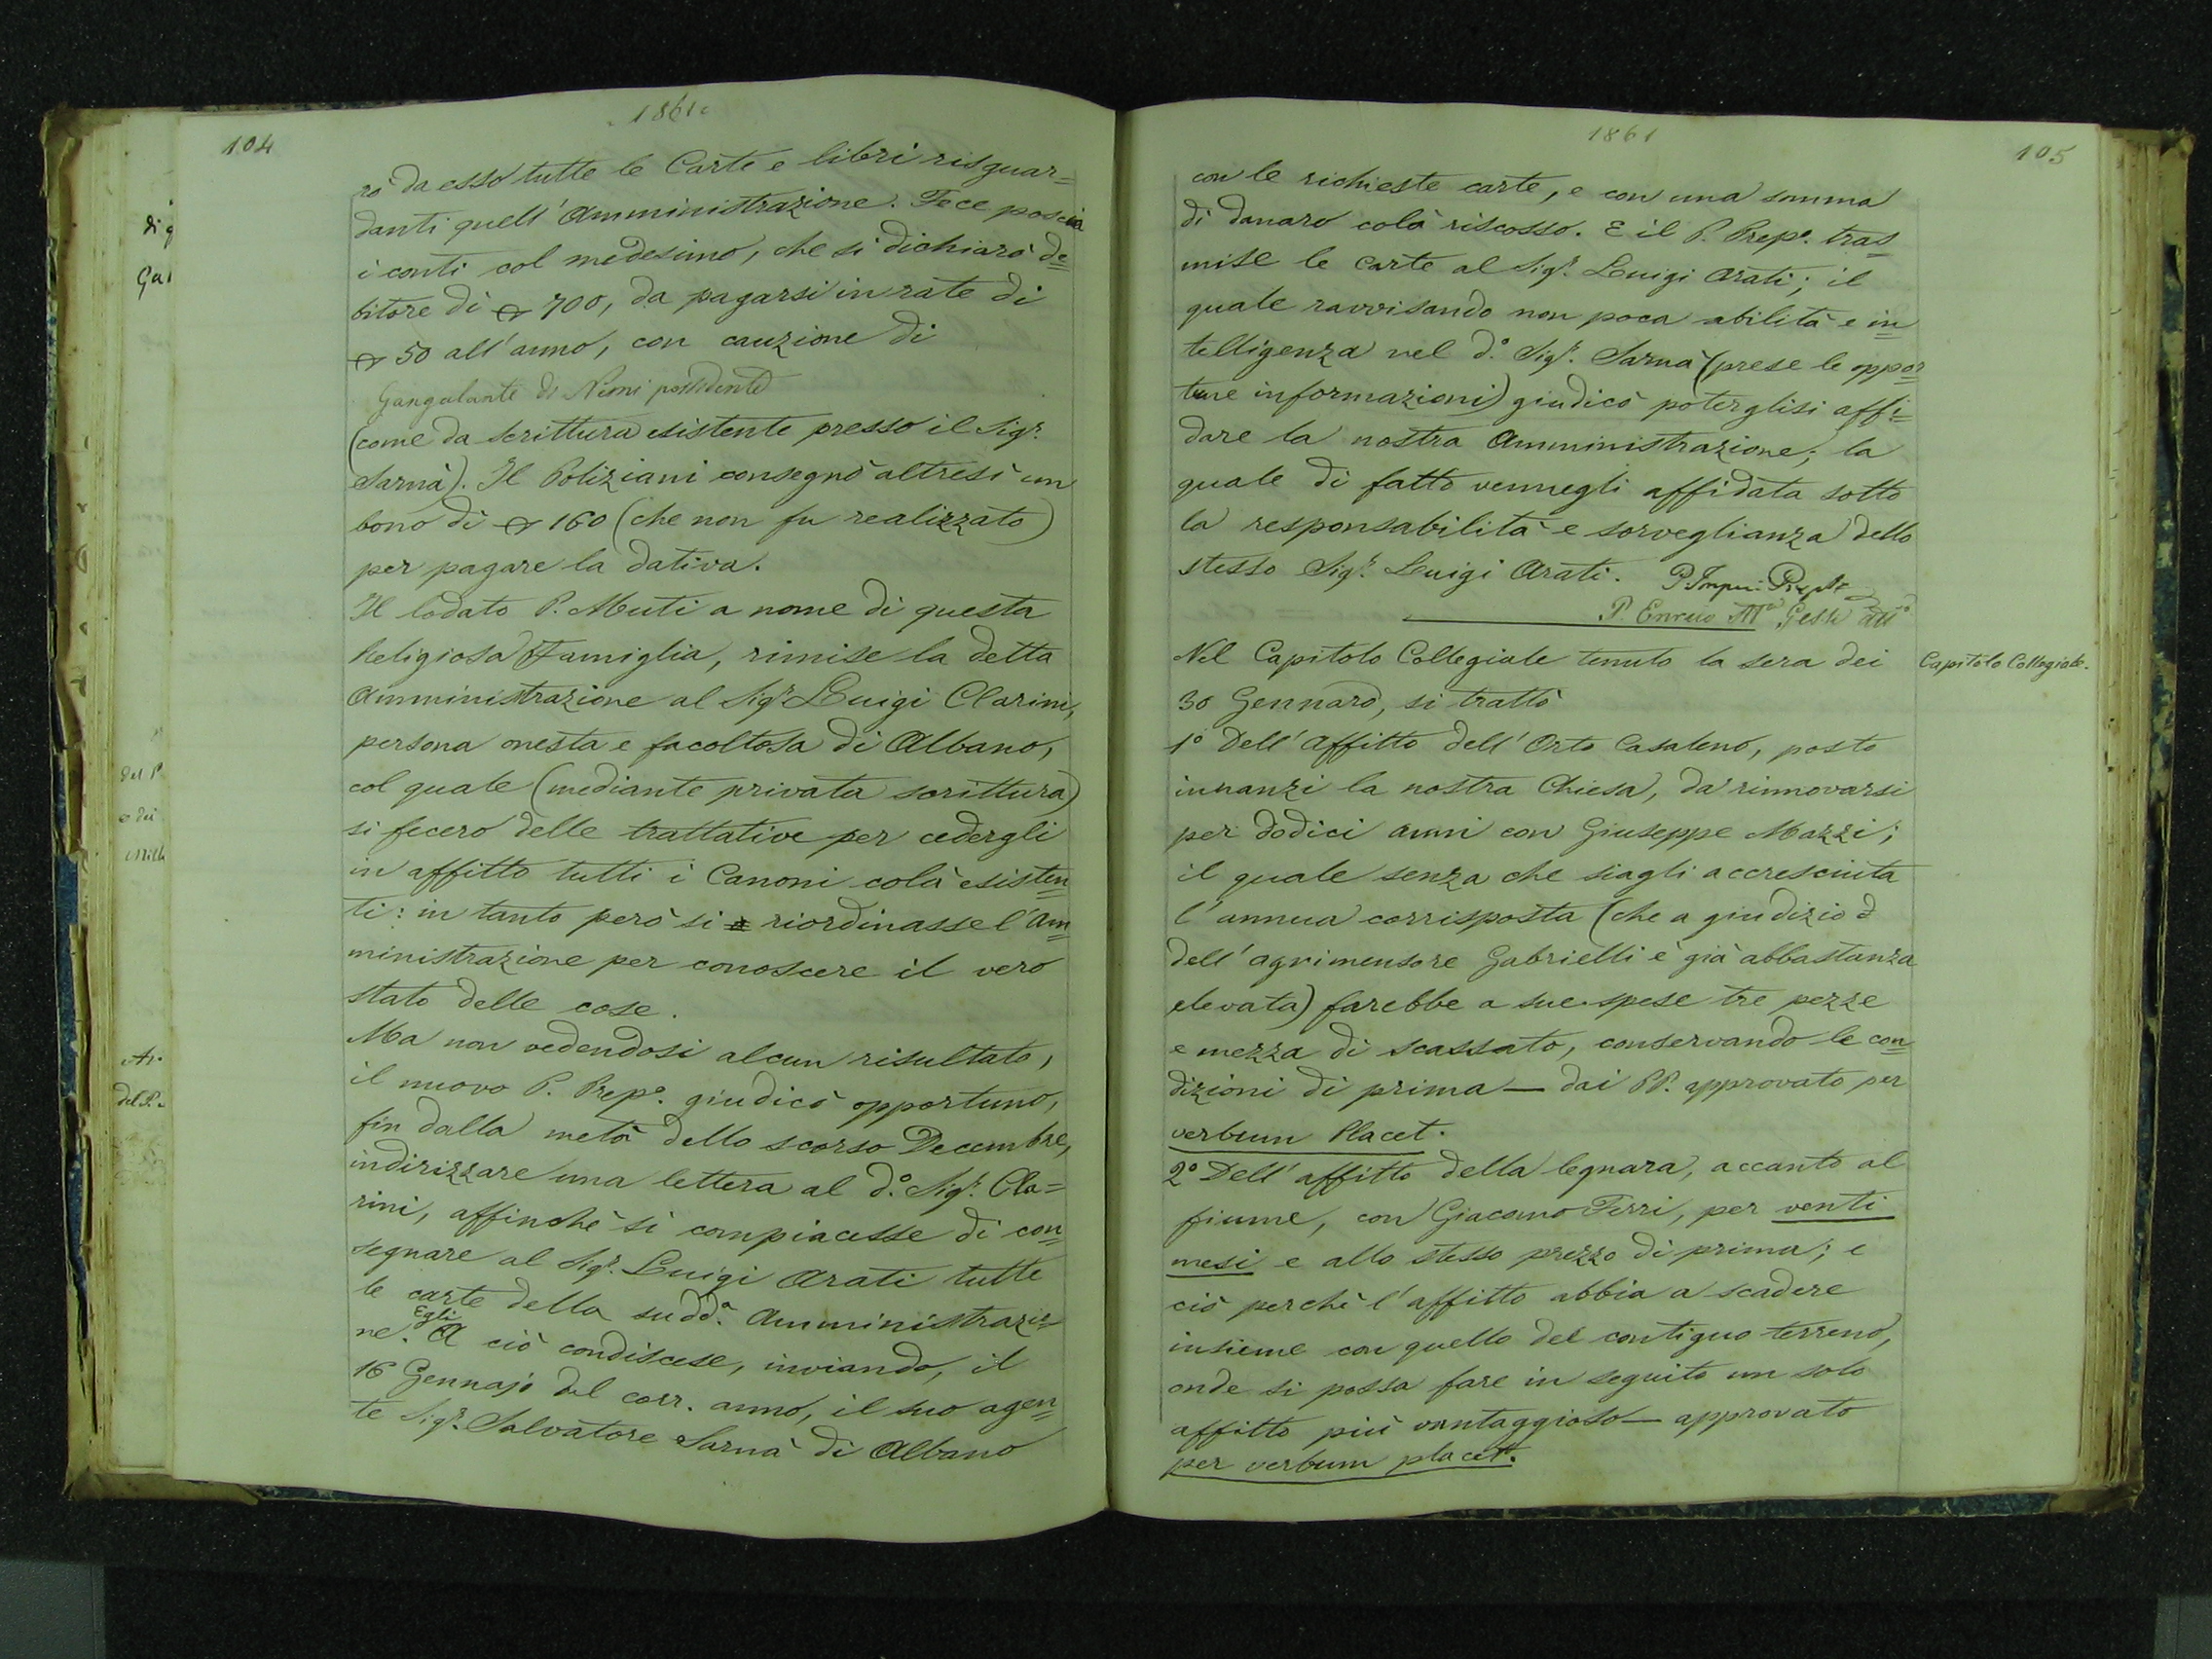 104
1861.
rò da esso tutte le Carte e libri risguar=
danti quell'Amministrazione. Fece poscia
i conti col medesimo, che si dichiarò de=
bitore di 700, da pagarsi in rate di
50 all'anno, con cauzione di
di Nemi possidente
(come da scrittura esistente presso il Sigr.
Sarnà). Il Poliziani consegnò altresì un
bono di 160 (che non fu realizzato)
per pagare la dativa.
Il lodato P. Muti a nome di questa
Religiosa Famiglia, rimise la detta
Amministrazione al Sigr Luigi Clarini,
persona onesta e facoltosa di Albano,
col quale (mediante privata scrittura)
si fecero delle trattative per cedergli
in affitto tutti i Canoni colà esisten=
ti: in tanto però si riordinasse l'Am=
ministrazione per conoscere il vero
stato delle cose.
Ma non vedendosi alcun risultato,
il nuovo P. Prepo. giudicò opportuno,
fin dalla metà dello scorso Decembre,
indirizzare una lettera al do. Sigr. Cla=
rini, affinchè si compiacesse di con=
segnare al Sigr. Luigi Arati tutte
le carte della sudda. Amministrazio=
ne. Egli A ciò condiscese, inviando, il
16 Gennajo del corr. anno, il suo agen=
te Sigr. Salvatore Sarnà di Albano
1861
105
con le richieste carte, e con una somma
di danaro colà riscosso. E il P. Prepo. tras=
mise le carte al Sigr. Luigi Arati; il
quale ravvisando non poca abilità e in=
telligenza nel do. Sigr. Sarnà (prese le oppor=
tune informazioni) giudicò poterglisi affi=
dare la nostra Amministrazione; la
quale di fatto vennegli affidata sotto
la responsabilità e sorveglianza dello
stesso Sigr. Luigi Arati.
Nel Capitolo Collegiale tenuto la sera dei
Capitolo Collegiale.
30 Gennaro, si trattò
1o Dell'affitto dell'Orto Casaleno, posto
innanzi la nostra Chiesa, da rinnovarsi
per dodici anni con Giuseppe Mazzi;
il quale senza che siagli accresciuta
l'annua corrisposta (che a giudizio d
dell'agrimensore Gabrielli è già abbastanza
elevata) farebbe a sue spese tre pezze
e mezza di scassato, conservando le con=
dizioni di prima — dai PP. approvato per
verbum Placet.
2o Dell'affitto della legnara, accanto al
fiume, con Giacomo Ferri, per venti
mesi e allo stesso prezzo di prima; e
ciò perchè l'affitto abbia a scadere
insieme con quello del contiguo terreno,
onde si possa fare in seguito un solo
affitto più vantaggioso — approvato
per verbum placet.